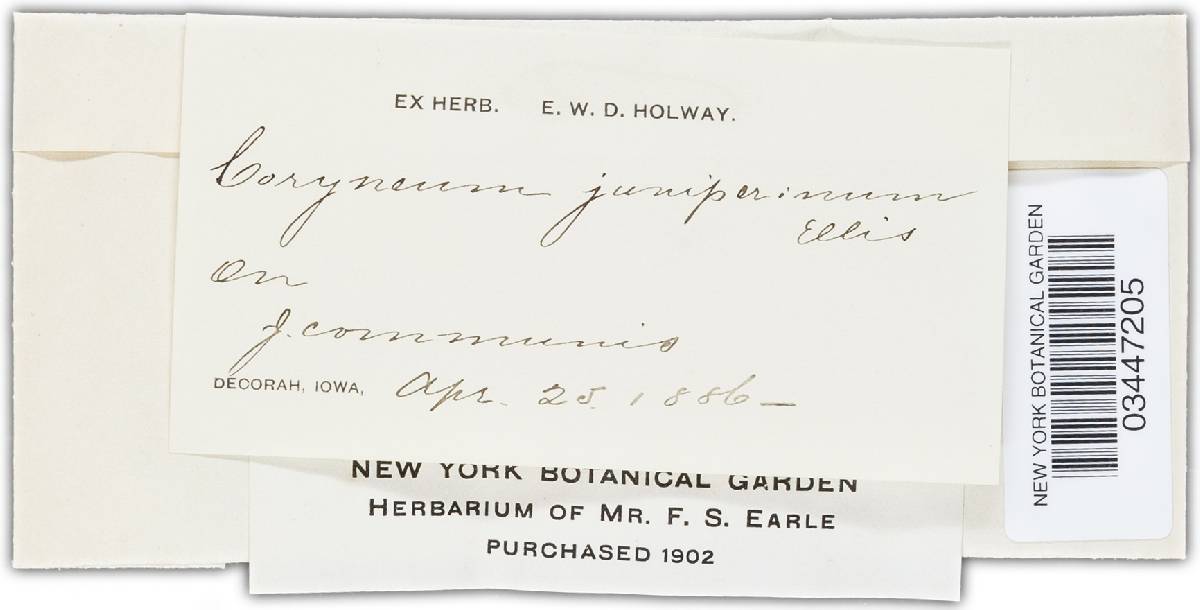 EX HERB. E. W. D. HOLWAY.
Coryneum juniperinum
Ellis
On
J. communis
DECORAH, IOWA, Apr. 25. 1886-
NEW YORK BOTANICAL GARDEN
HERBARIUM OF MR. F. S. EARLE
PURCHASED 1902
NEW YORK BOTANICAL GARDEN
03447205